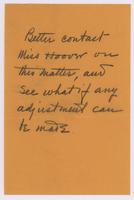 Better contact
Miss Hoover on
this matter, and
see what if any
adjustment can
be made